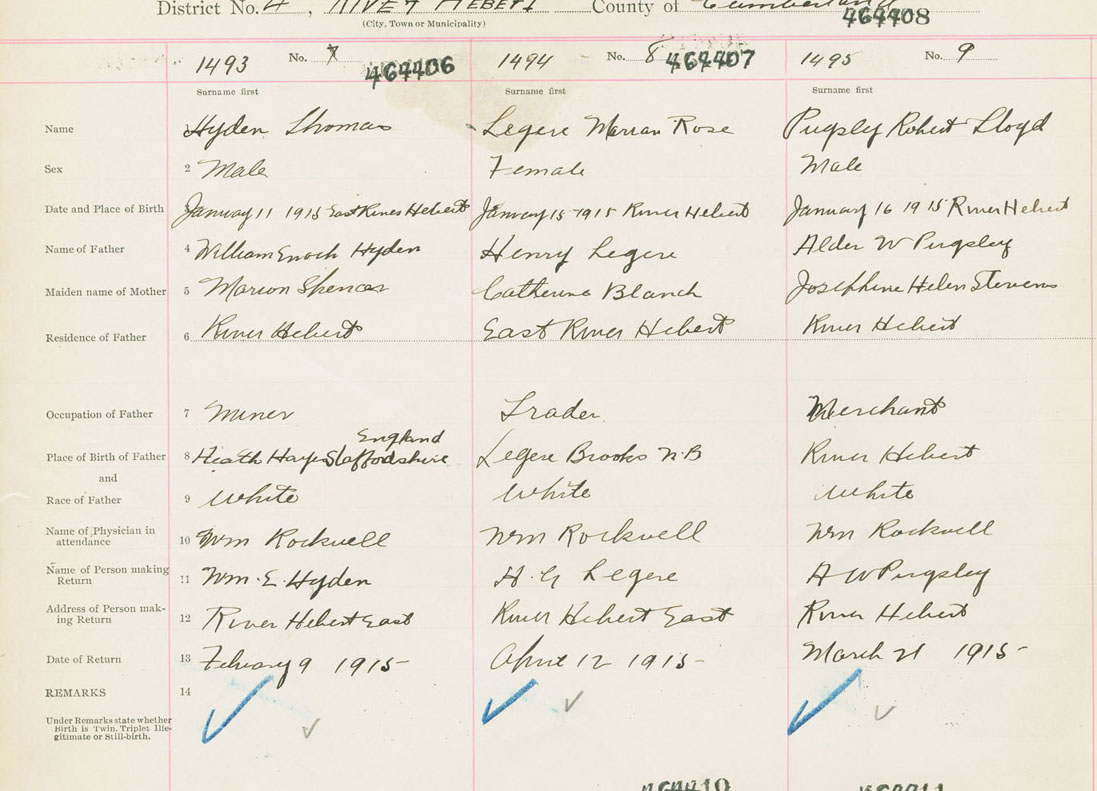 District No. 4, River Hebert County of Cumberland
(City, Town or Municipality)
464408
1493 No. 7 464406 1494 No. 8 464407 1495 No. 9
Surname first Surname first Surname first
Name 1 Hyden Thomas Legere Marian Rose Pugsley Robert Lloyd
Sex 2 Male Female Male
Date and Place of Birth January 11 1915 East River Hebert January 15 1915 River Hebert January 16 1915 River Hebert
Name of Father 4 William Enoch Hyden Henry Legere Alder W Pugsley
Maiden name of Mother 5 Marion Spencer Catherine Blanch Josephine Helen Stevens
Residence of Father 6 River Hebert East River Hebert River Hebert
Occupation of Father 7 Miner Trader Merchant
England
Place of Birth of Father 8 Heath Hayes Staffordshire Legere Brooks N.B River Hebert
and
Race of Father 9 White White White
Name of Physician in
attendance 10 Wm Rockwell Wm Rockwell Wm Rockwell
Name of Person making
Return 11 Wm. E. Hyden H. G Legere A W Pugsley
Address of Person mak-
ing Return 12 River Hebert East River Hebert East River Hebert
Date of Return 13 February 9 1915 April 12 1915 March 21 1915
REMARKS 14
Under Remarks state whether
Birth is Twin, Triplet Ille-
gitimate or Still-birth.